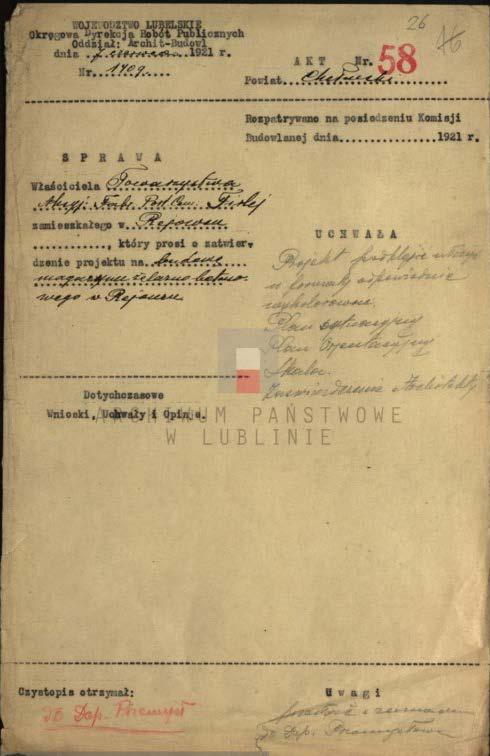 26
WOJEWÓDZTWO LUBELSKIE
Okręgowa Dyrekcja Robót Publicznych
Oddział: Archit-Budowl
dnia 7 czerwca 1921 r.
Nr. 1409
AKT Nr. 58
Powiat Chełmski
Rozpatrywano na posiedzeniu Komisji
Budowlanej dnia 1921 r.
SPRAWA
Właściciela Towarzystwa
Akcyj. Fabr. Port. Cem. Firlej
zamieszkałego w Rejowcu
, który prosi o zatwier-
dzenie projektu na budowę
magazynu żelazno-beto-
wego w Rejowcu
UCHWAŁA
Projekt
Plan sytuacyjny
Plan Orjentacyjny
Skala.
Dotychczasowe
Wnioski, Uchwały i Opinje.
ARCHIWUM PAŃSTWOWE
W LUBLINIE
Czystopis otrzymał:
Dep. Przemysł
Uwagi
Dep. Przemysłowe